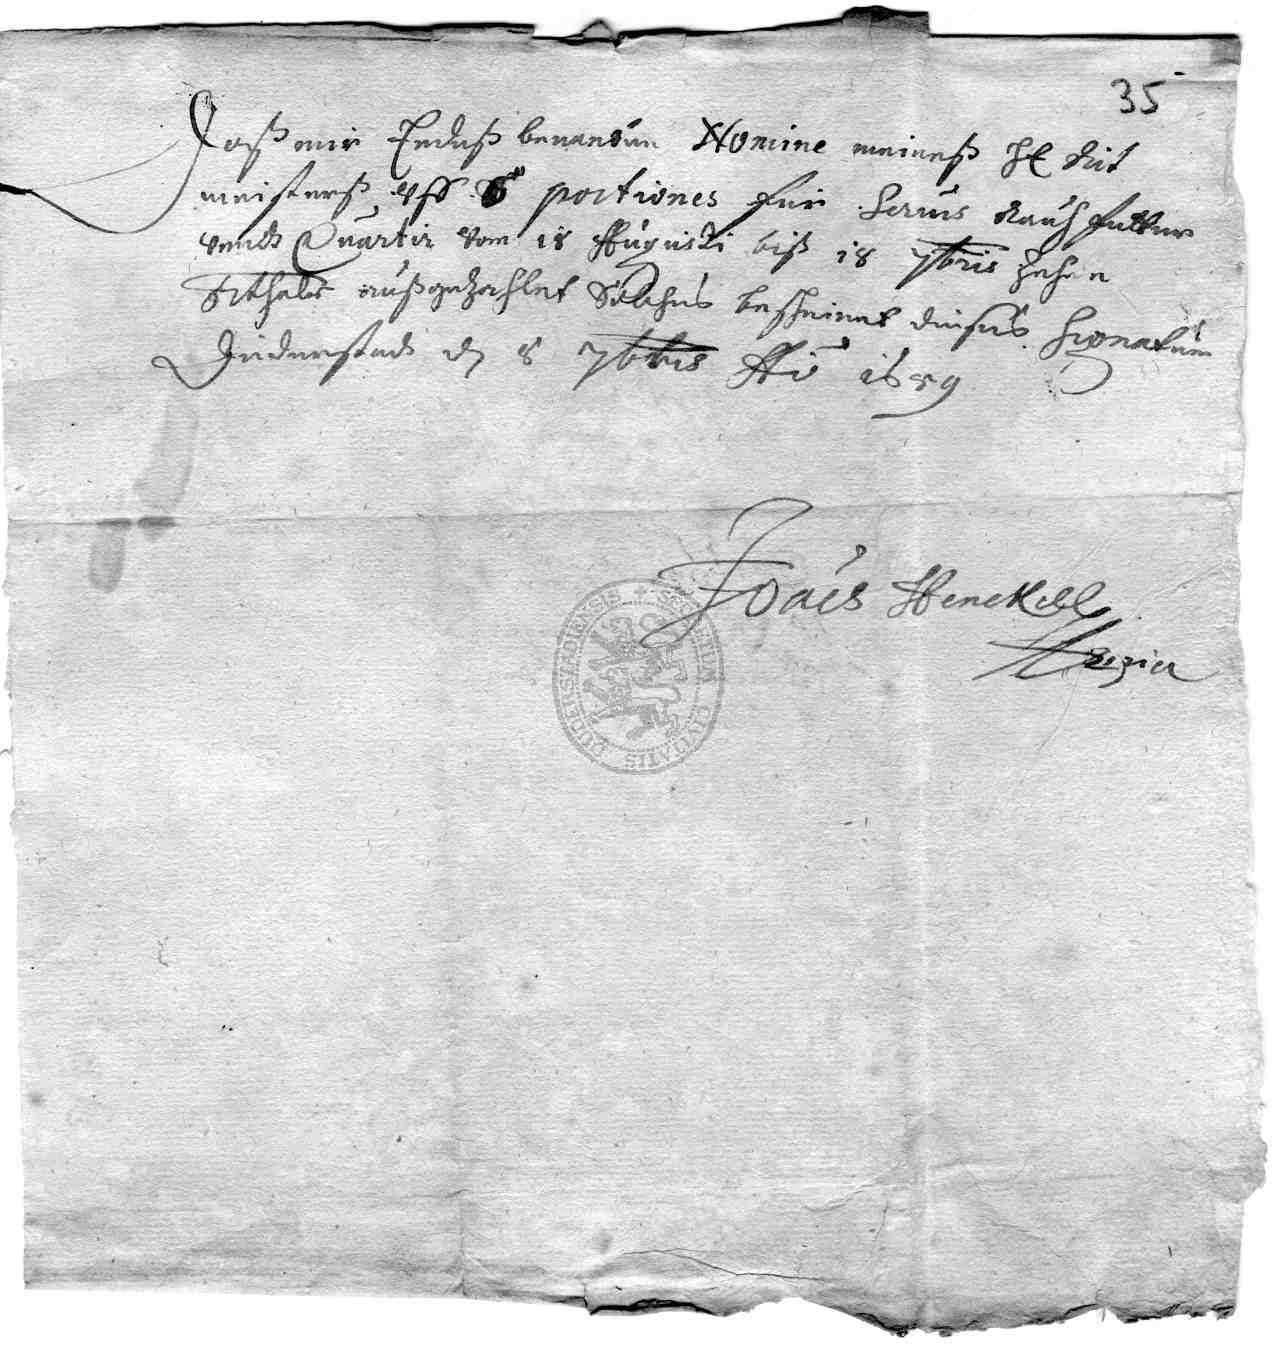 35
Daß mir Endeß benandten Nomine meineß H Rit
meisterß vff 6 portiones für Servis Rauhfutter
vndt Quartir vom 18 Augusti biß 18 7bris Zehen
Rthaler außgezahlet Solches bescheinet dieses Signatum
Duderstadt d 8 7bris Ao 1689
Joaes Henckell
SIGILLUM CIVITATIS DUDERSTADIENSIS